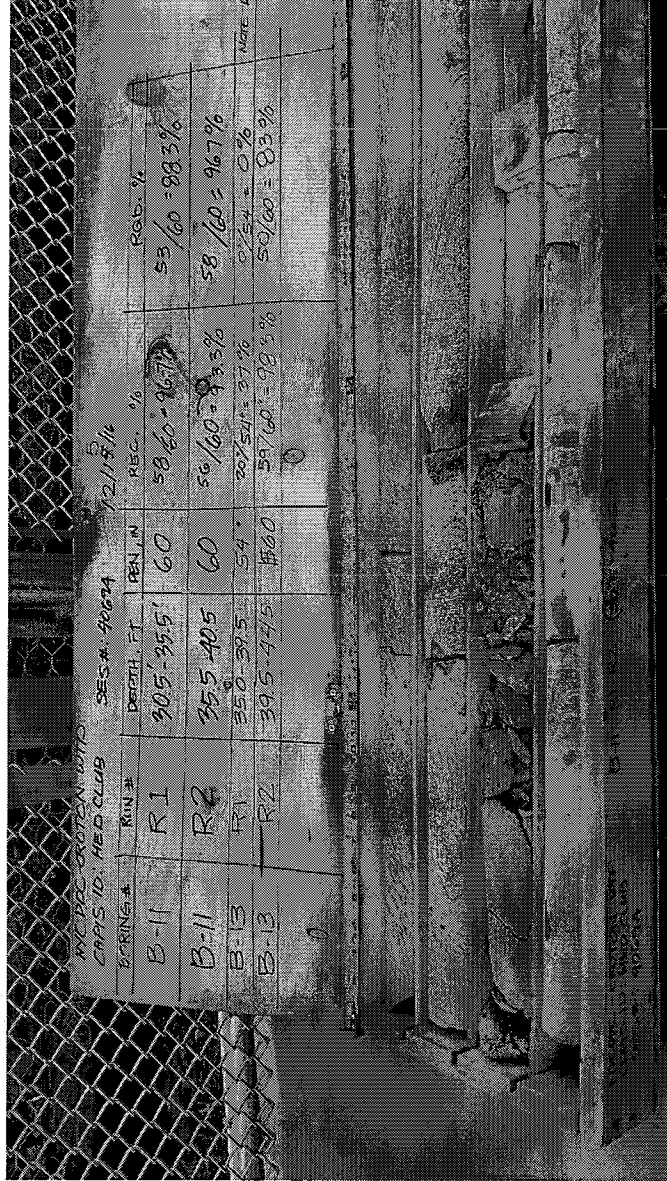 NYC DDC CROTON WTP
CAPIS ID: HED CLUB SES # 40624
12/15/16
BORING # RUN # DEPTH, FT PEN, IN REC. % RQD. %
B-11 R1 30.5'-35.5' 60 58/60" = 96.7% 53/60 = 88.3%
B-11 R2 35.5-40.5 60 56/60 = 93.3% 58/60 = 96.7%
B-13 R1 35.0-39.5 54" 20"/54" = 37% 0/54 = 0% NOTE
B-13 R2 39.5-44.5 60 59/60" = 98.3% 50/60 = 83%